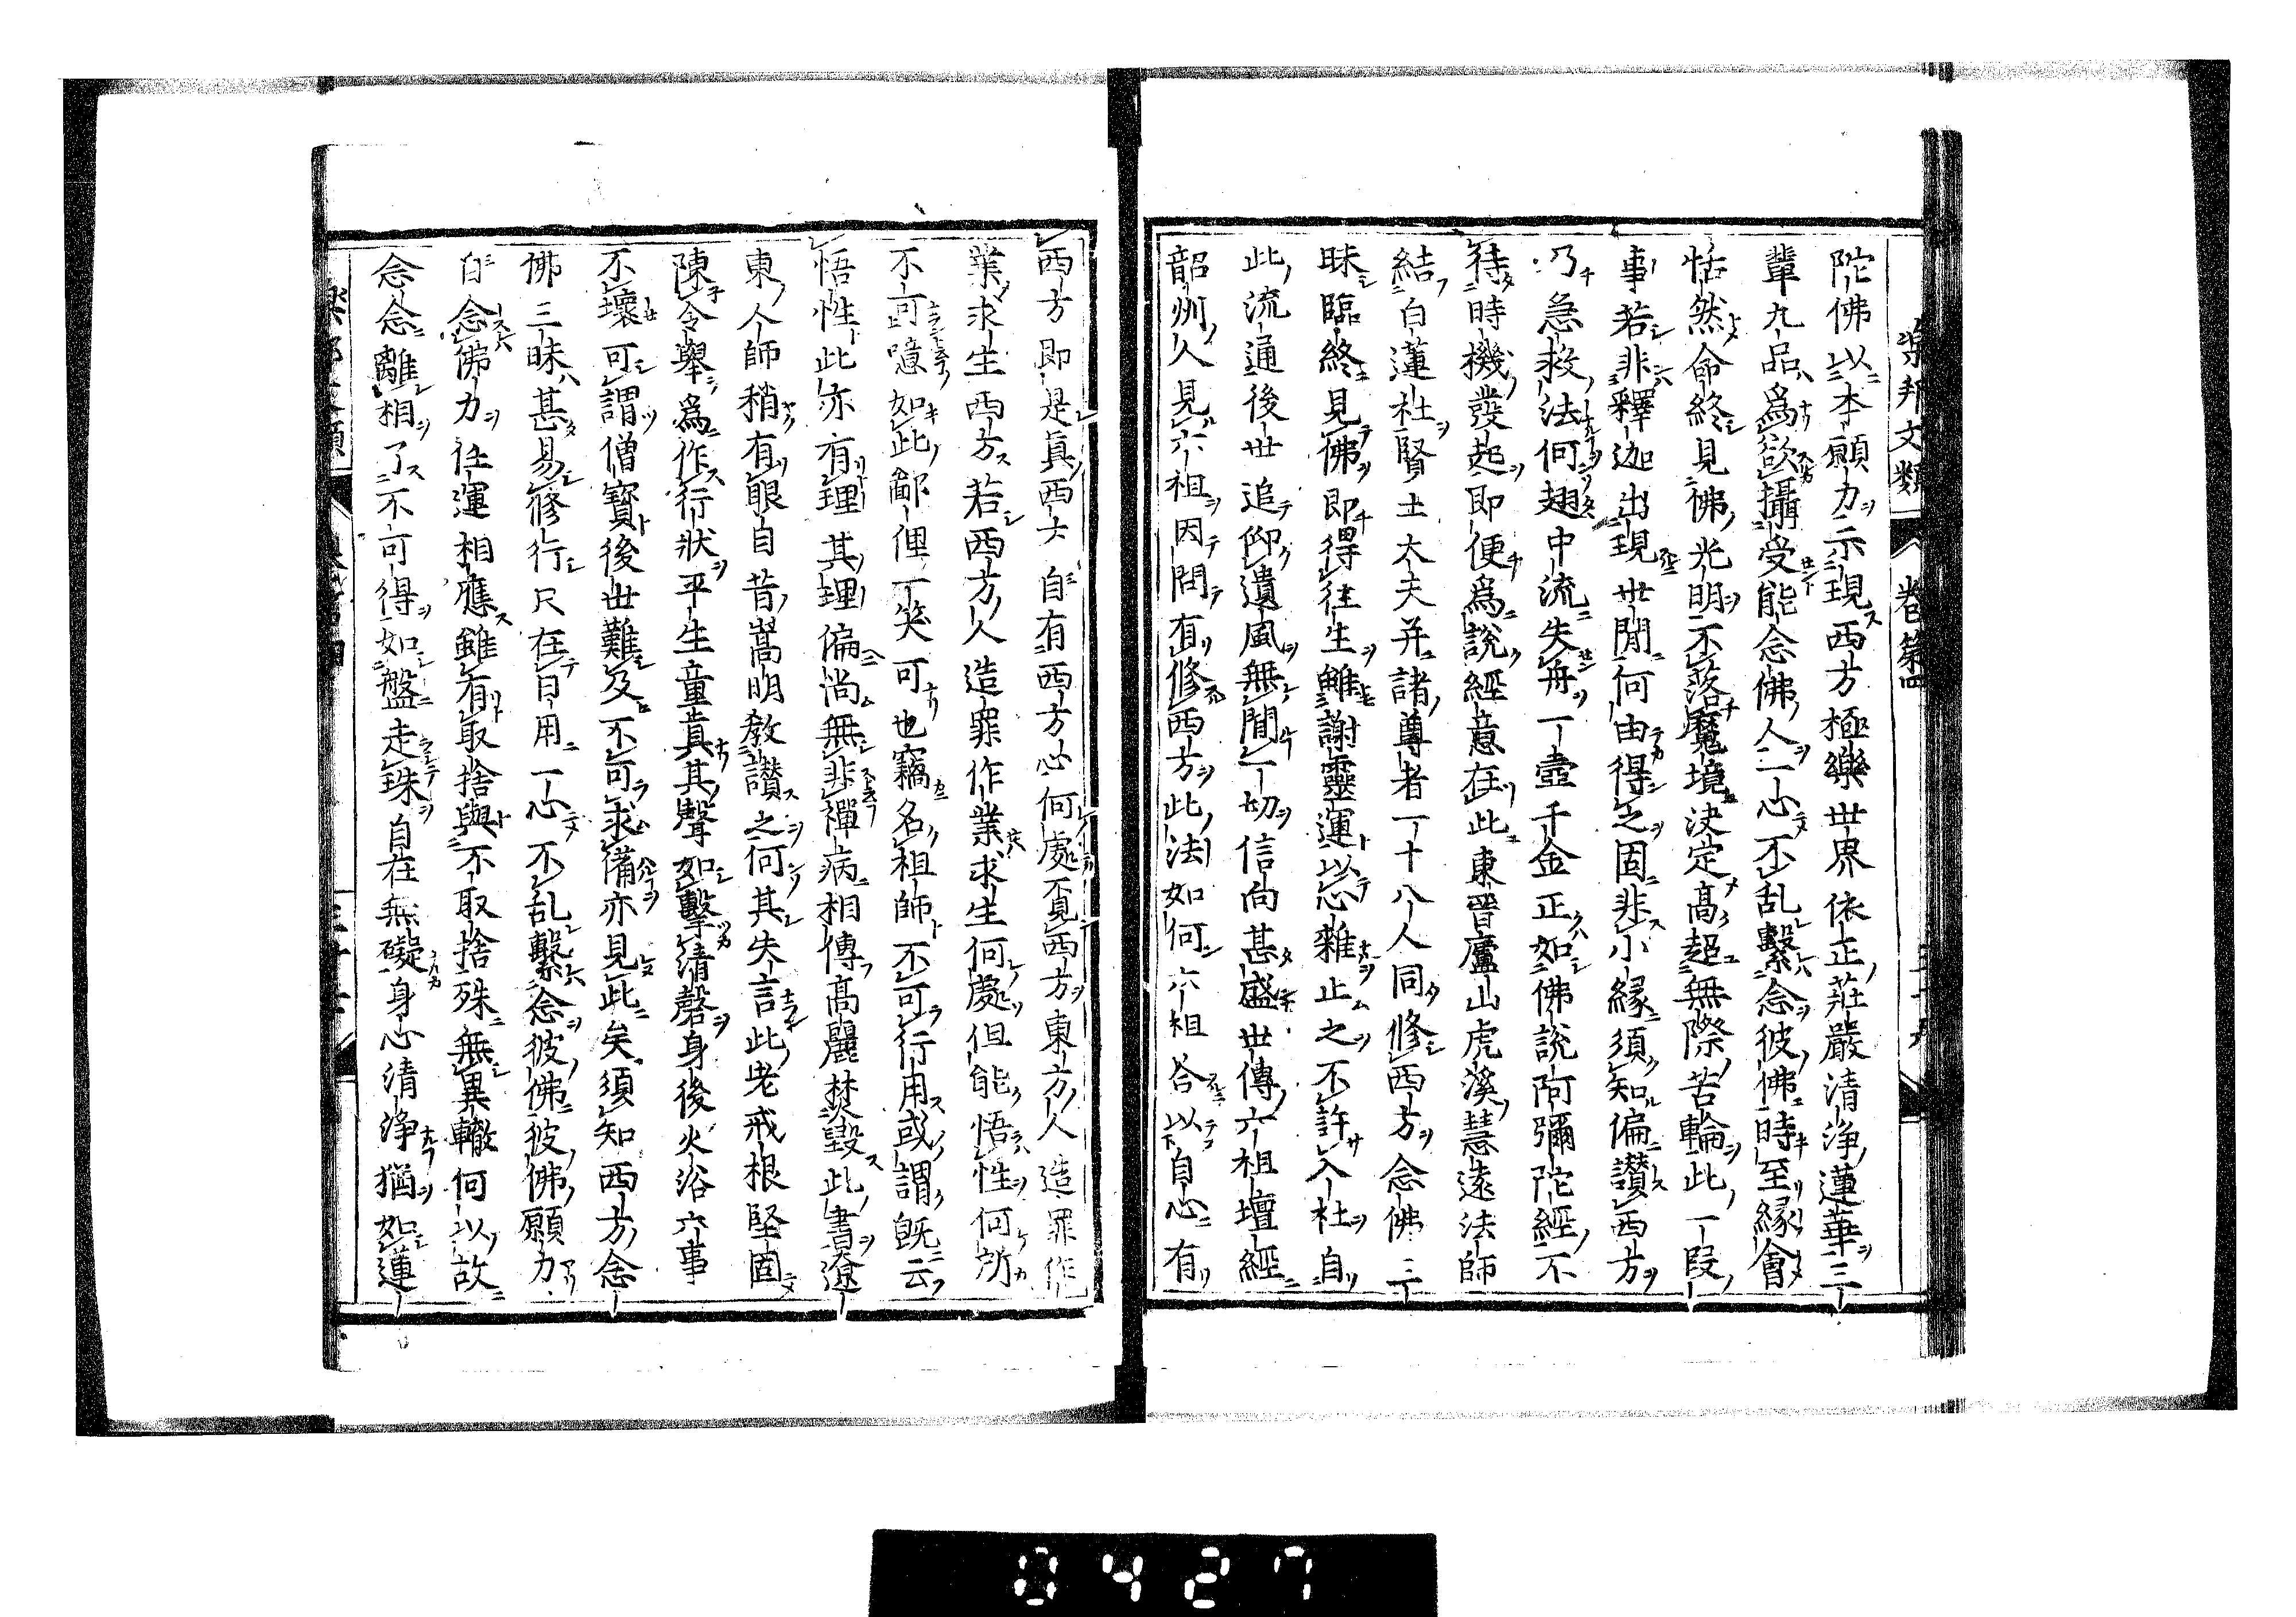 樂邦文類 卷第四
陀佛以本願力示現西方極樂世界依正莊嚴清淨蓮華三
輩九品爲欲攝受能念佛人一心不乱繫念彼佛時至緣會
恬然命終見佛光明不落魔境決定高超無際苦輪此一段
事若非釋迦出現世間何由得之固非小緣須知偏讃西方
乃急救法何翅中流失舟一壺千金正如佛說阿彌陀經不
待時機發起即便爲說經意在此東晉廬山虎溪慧遠法師
結白蓮社賢士大夫并諸尊者一十八人同修西方念佛三
昧臨終見佛即得往生雖謝靈運以心雜止之不許入社自
此流通後世追仰遺風無間一切信向甚盛世傳六祖壇經
韶州人見六祖因問有修西方此法如何六祖答以自心有
西方即是真西方自有西方必何處覓西方東方人造罪作
業求生西方若西方人造罪作業求生何處但能悟性何所
不可噫如此鄙俚一笑可也竊名祖師不可行用或謂既云
悟性此亦有理其理偏尚無非禪病相傳高麗焚毀此書遼
東人師稍有眼自昔嵩明教讃之何其失言此老戒根堅固
陳令舉爲作行狀平生童真其聲如擊清磬身後火浴六事
不壞可謂僧寶後世難及不可求備亦見此矣須知西方念
佛三昧甚易修行只在日用一心不乱繫念彼佛彼佛願力
自念佛力任運相應雖有取捨與不取捨殊無異轍何以故
念念離相了不可得如盤走珠自在無礙身心清淨猶如蓮
0427